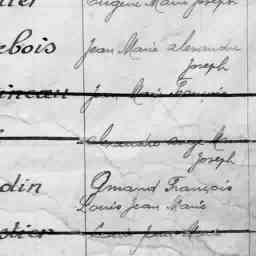 Eugène Marie Joseph
ebois Jean Marie alexandre
Joseph
Jean Marie François
alexandre ange Marie
Joseph
din Amand François
Louis Jean Marie
Louis Jean Marie